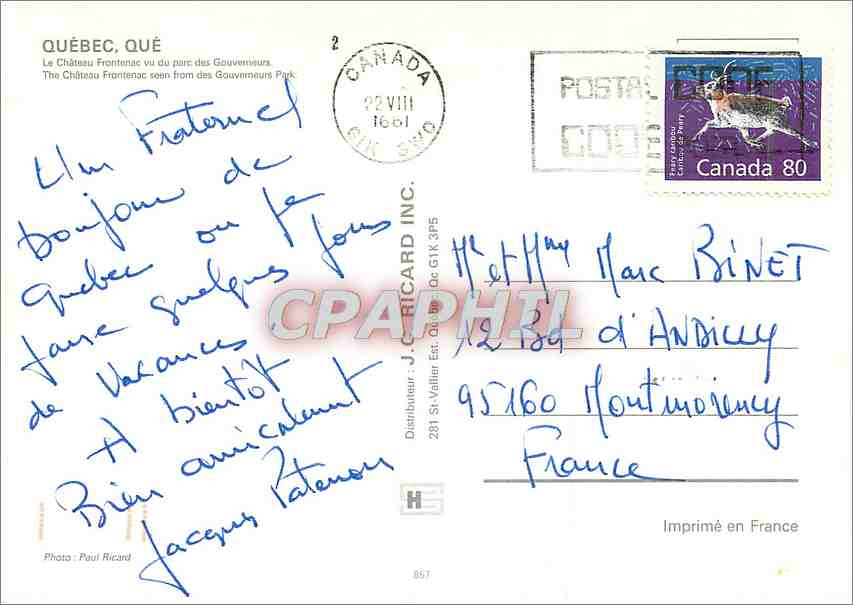 QUÉBEC, QUÉ
Le Château Frontenac vu du parc des Gouverneurs.
The Château Frontenac seen from des Gouverneurs Park.
Un Fraternel
bonjour de
Quebec ou je
passe quelques jours
de vacances.
A bientôt
Bien amicalement
Jacques
Photo : Paul Ricard
2
CANADA
22 VIII
1661
G1K 3W0
POSTAL CODE
CODE
Peary caribou
Caribou de Peary
Canada 80
Distributeur : J.C. RICARD INC.
281 St-Vallier Est. Québec, Qc G1K 3P5
CPAPHIL
Mr et Mme Marc BINET
12 Bd d'ANDILLY
95160 Montmorency
France
HS
Imprimé en France
857